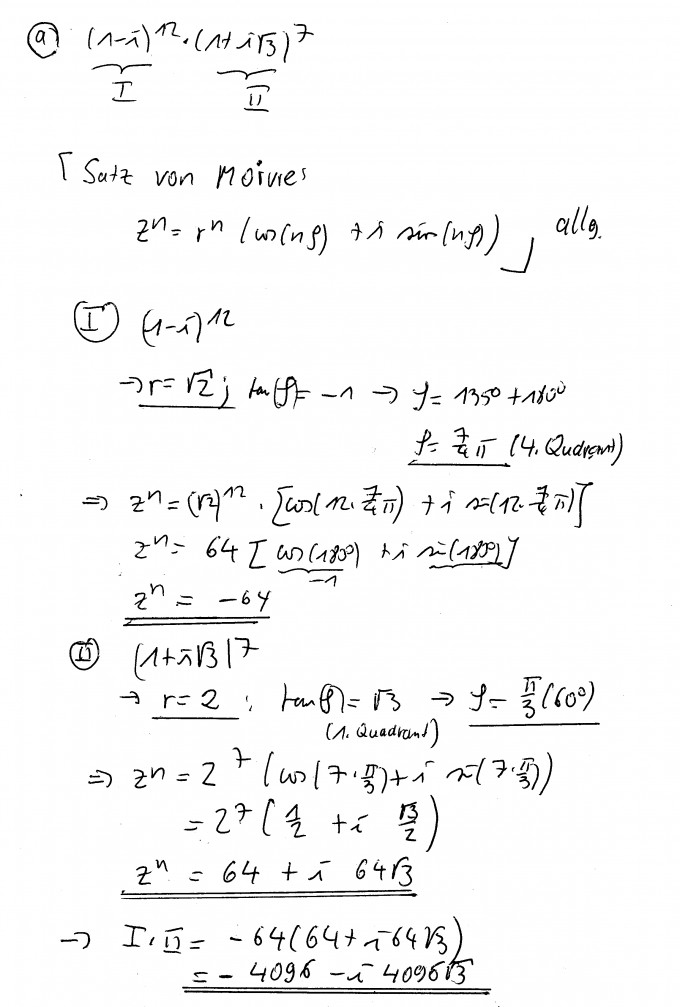 (a) (1-i)¹² · (1+i√3)⁷
I II
⌈ Satz von Moivre:
zⁿ = rⁿ (cos(nφ) + i sin(nφ)) ⌋ allg.
(I) (1-i)¹²
→ r = √2 ; tan(φ) = -1 → φ = 135° + 180°
φ = 7/4 π (4. Quadrant)
⇒ zⁿ = (√2)¹² · [cos(12 · 7/4 π) + i sin(12 · 7/4 π)]
zⁿ = 64 [cos(180°) + i sin(180°)]
-1
zⁿ = -64
(II) (1+i√3)⁷
→ r = 2 ; tan(φ) = √3 → φ = π/3 (60°)
(1. Quadrant)
⇒ zⁿ = 2⁷ (cos(7 · π/3) + i sin(7 · π/3))
= 2⁷ (1/2 + i √3/2)
zⁿ = 64 + i 64√3
→ I · II = -64(64 + i 64√3)
= - 4096 - i 4096√3